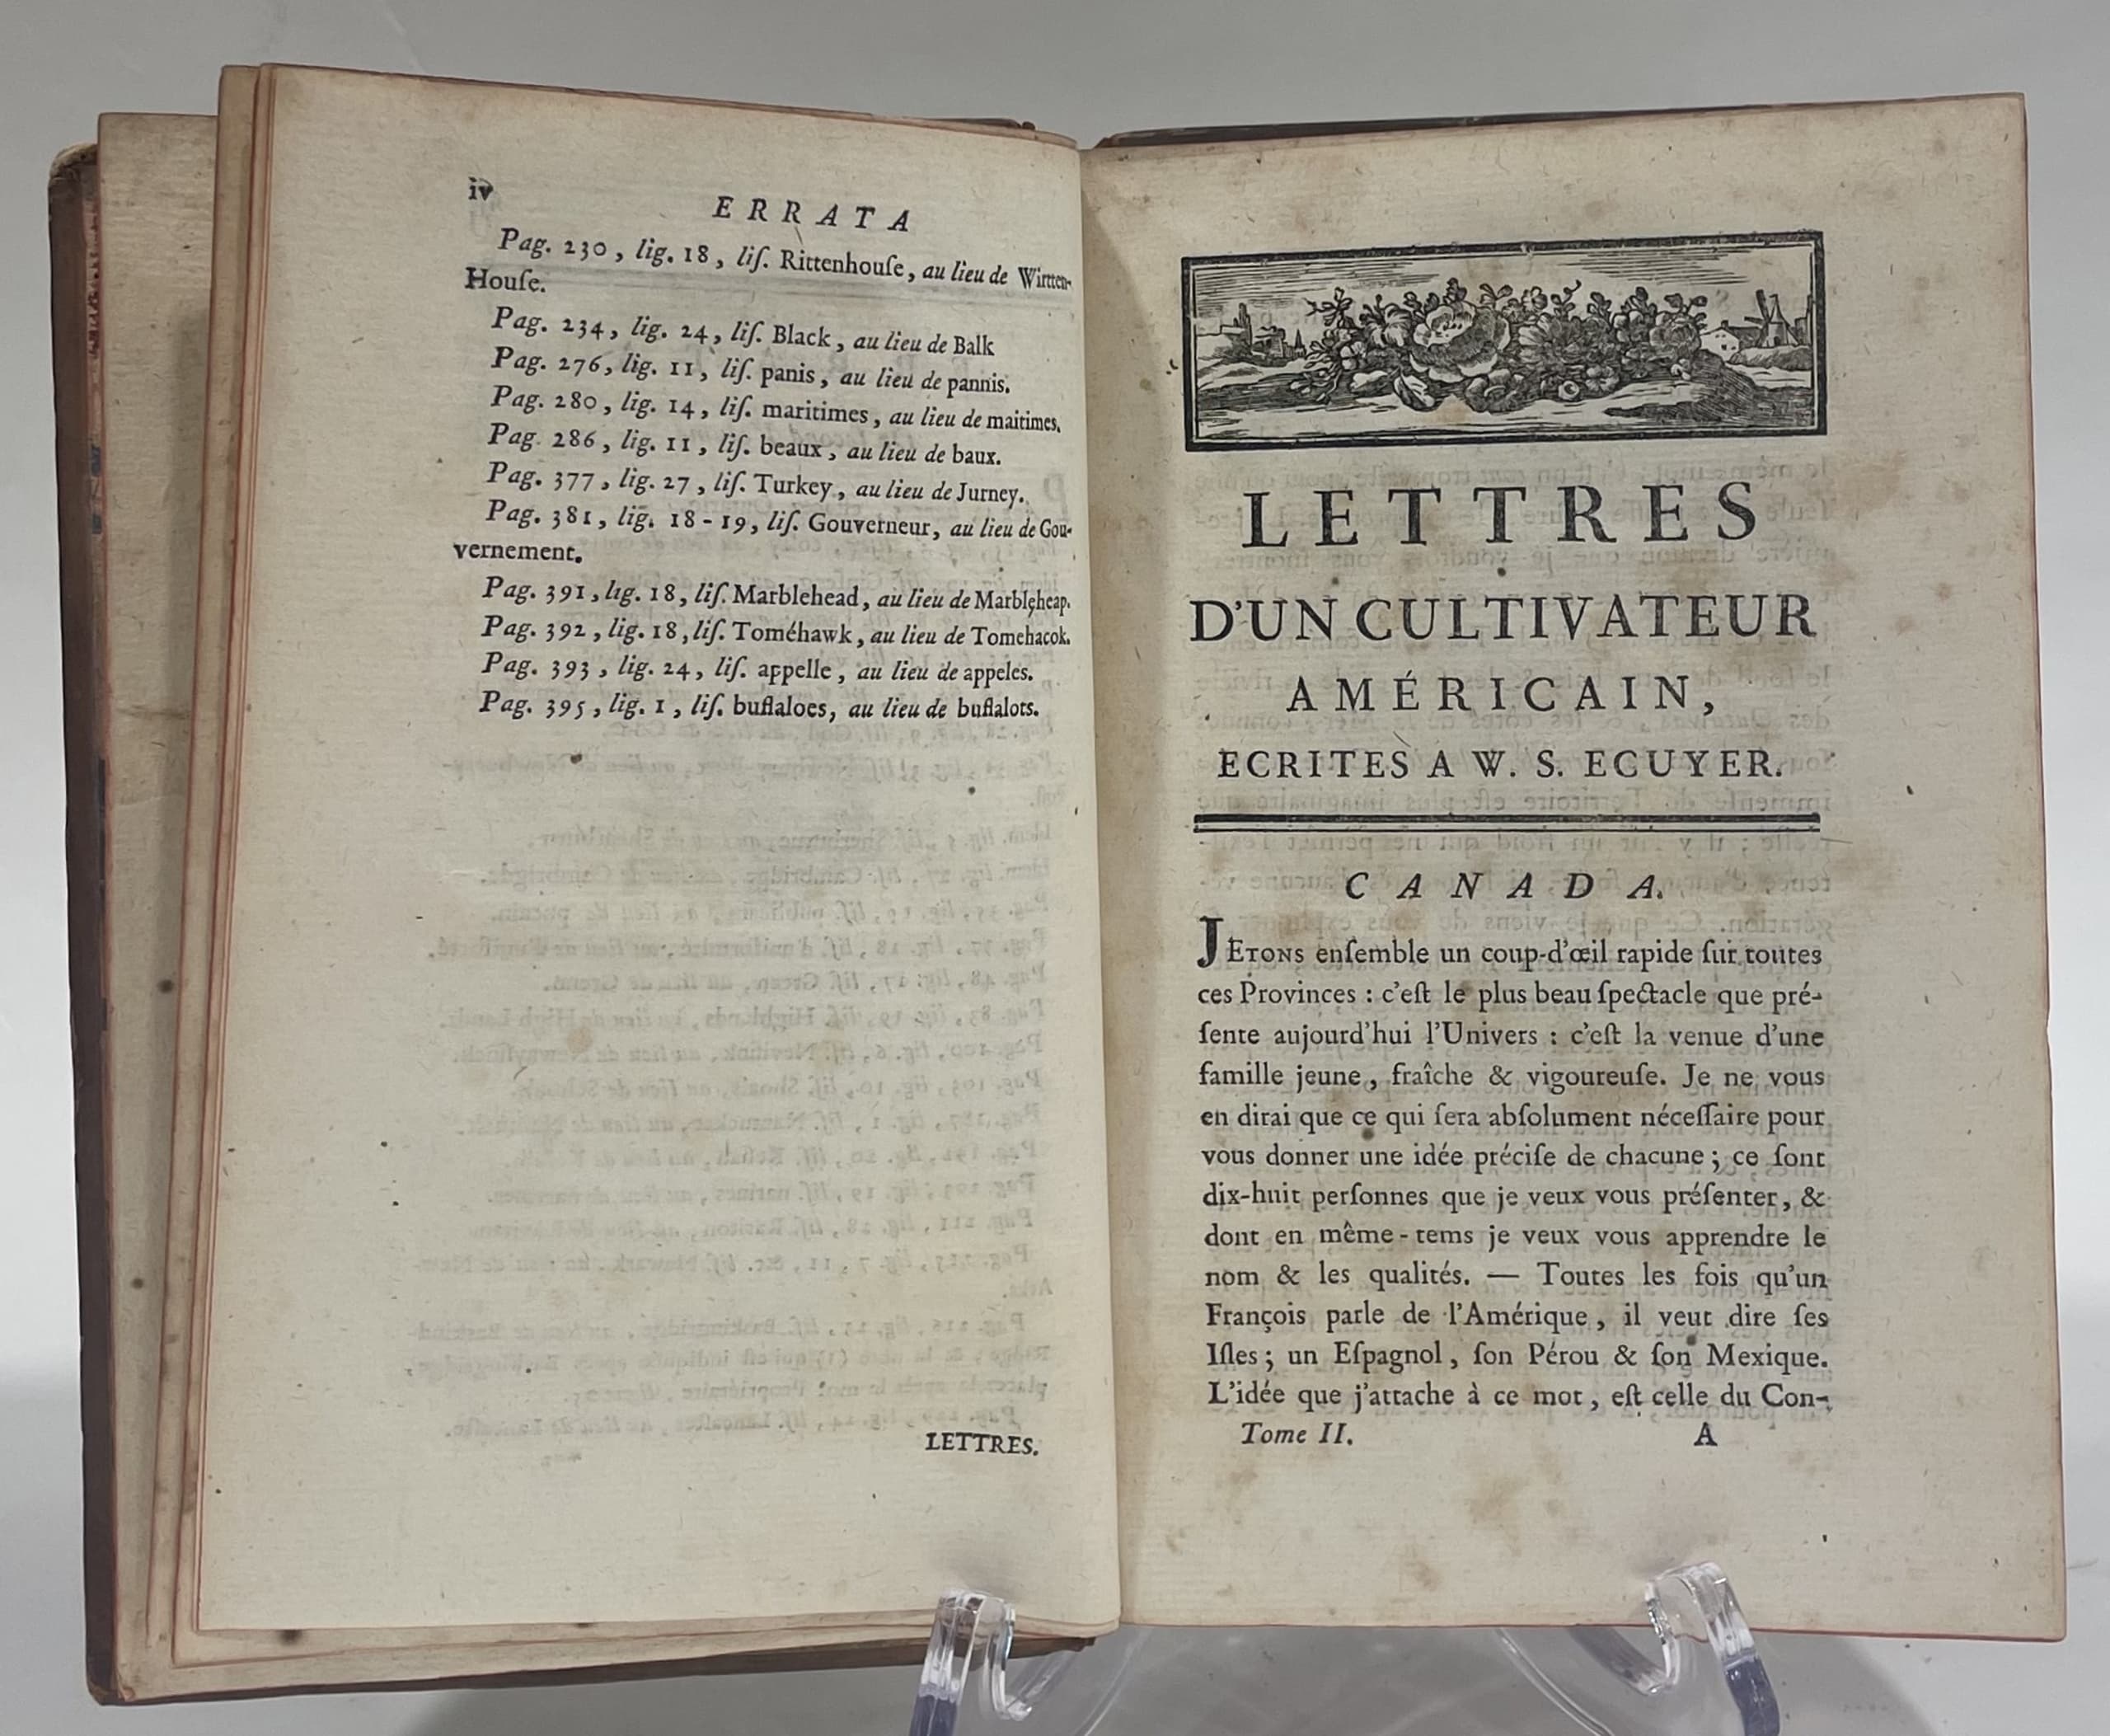 iv
ERRATA
Pag. 230, lig. 18, liſ. Rittenhouſe, au lieu de Wirtten-
Houſe.
Pag. 234, lig. 24, liſ. Black, au lieu de Balk
Pag. 276, lig. 11, liſ. panis, au lieu de pannis.
Pag. 280, lig. 14, liſ. maritimes, au lieu de maitimes.
Pag. 286, lig. 11, liſ. beaux, au lieu de baux.
Pag. 377, lig. 27, liſ. Turkey, au lieu de Jurney.
Pag. 381, lig. 18-19, liſ. Gouverneur, au lieu de Gou-
vernement.
Pag. 391, lig. 18, liſ. Marblehead, au lieu de Marbleheap.
Pag. 392, lig. 18, liſ. Toméhawk, au lieu de Tomehacok.
Pag. 393, lig. 24, liſ. appelle, au lieu de appeles.
Pag. 395, lig. 1, liſ. buffaloes, au lieu de buffalots.
LETTRES.
LETTRES
D'UN CULTIVATEUR
AMÉRICAIN,
ECRITES A W. S. ECUYER.
CANADA.
JETONS enſemble un coup-d'œil rapide ſur toutes
ces Provinces : c'eſt le plus beau ſpectacle que pré-
ſente aujourd'hui l'Univers : c'eſt la venue d'une
famille jeune, fraîche & vigoureuſe. Je ne vous
en dirai que ce qui ſera abſolument néceſſaire pour
vous donner une idée préciſe de chacune ; ce ſont
dix-huit perſonnes que je veux vous préſenter, &
dont en même-tems je veux vous apprendre le
nom & les qualités. — Toutes les fois qu'un
François parle de l'Amérique, il veut dire ſes
Iſles ; un Eſpagnol, ſon Pérou & ſon Mexique.
L'idée que j'attache à ce mot, eſt celle du Con-
Tome II. A